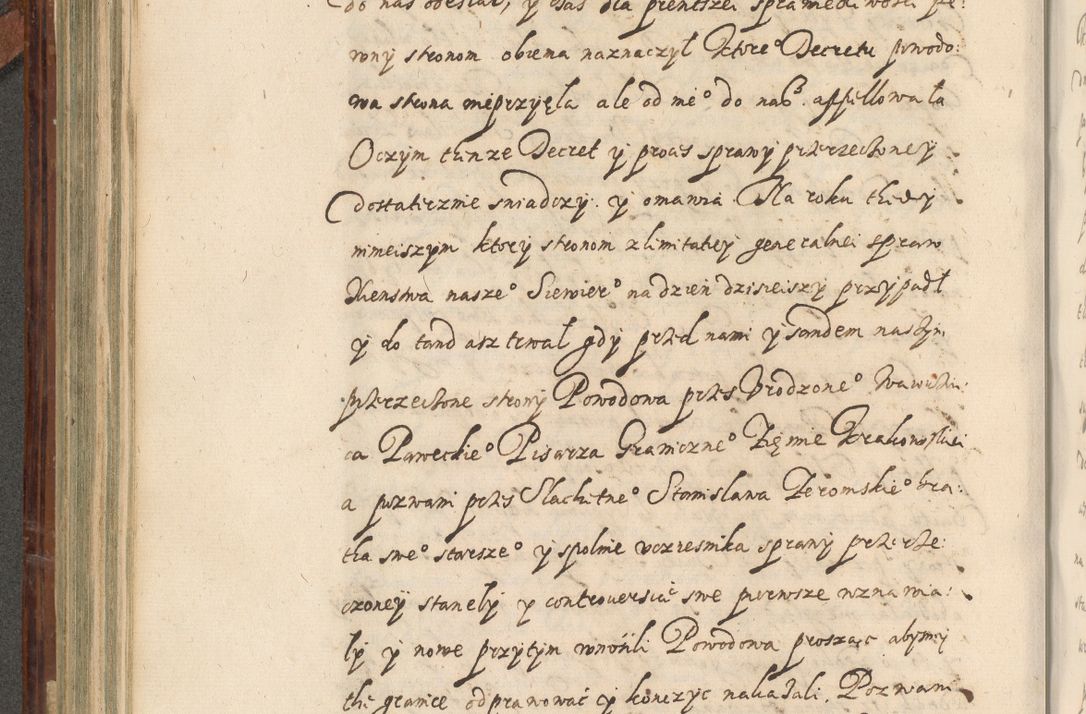 do nas odesłał, y czas dla prentszei sprawiedliwosci pe:
wny stronom obiema naznaczył Którego Decretu powodo:
wa strona nieprzyięła ale od niego do nas appellowała
Oczym tenze Decret y proces sprawy przerzeczoney
dostatecznie sniadczy. y omawia. Na roku thedy
nineiszym ktory stronom z limitatiey generalnei spraw
Xienstwa naszego Siewiergo na dzien dzisieiszy przypadł
y do tand asz trwał gdy przed nami y sandem naszym
przerzeczone strony Powodowa przes Vrodzonego Wawrzin:
ca Paweckiego Pisarza Granicznego Ziemie Krakowskiei
a pozwani przes Slachetnego Stanislawa Zeromskiego bra:
tha swego starszego y spolnie vczesnika sprawy przerze:
czoneÿ staneły y controuersiae swe pierwsze wznawia:
ły y nowe przytym wnosili Powodowa prosząc abysmy
the granice odprawować y konczyc nakazali. Pozwani